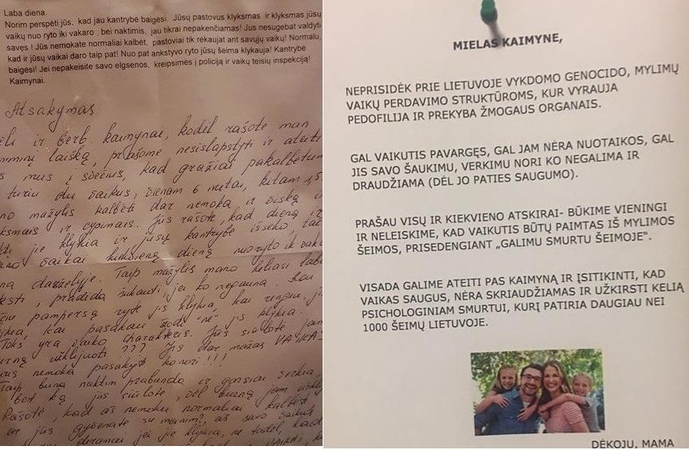 Laba diena
Norim perspėti jūs, kad jau kantrybė baigėsi. Jūsų pastovus klyksmas ir klyksmas jūsų
vaikų nuo ryto iki vakaro, bei naktimis, jau tikrai nepakenčiamas! Jūs nesugebat valdyti
savęs! Jūs nemokate normaliai kalbėt, pastoviai tik rėkaujat ant savųjų vaikų! Normalu,
kad ir jūsų vaikai daro taip pat! Nuo pat ankstyvo ryto jūsų šeima klykauja! Kantrybė
baigėsi! Jei nepakeisite savo elgsenos, kreipsimės į policiją ir vaikų teisių inspekciją!
Kaimynai.
Atsakymas
ir gerb. kaimynai, kodėl rašote man
laišką, prašome nesislapstyti ir ateiti
mus į svečius, kad gražiai pakalbėtum
turiu du vaikus, vienam 6 metai, kitam
mažylis kalbėti dar nemoka ir viską
ir cypimais. Jūs rašote, kad dieną ir
jie klykia ir jūsų kantrybė išseko,
vaikai kiekvieną dieną nuo ryto ik
darželyje. Taip mažylis mano keliasi
pradeda šūkauti, jei ko negauna.
pampersą ryte jis klykia, kai rengiu,
kai pasakau žodį "ne" jis klykia.
Toks yra vaiko charakteris. Jūs siūlote jam
užklijuoti ??? Jis dar mažas VAIKAS
nemoka pasakyti ko nori!!!
Taip būna naktim prabunda ir garsiai verkia,
bet ką jūs siūlote, dėl
Rašote, kad aš nemoku normaliai kalbėti
ir jūs gyvenate su manim?, aš savo vaikus
jei jie klykia, ne todėl, kad
MIELAS KAIMYNE,
NEPRISIDĖK PRIE LIETUVOJE VYKDOMO GENOCIDO, MYLIMŲ
VAIKŲ PERDAVIMO STRUKTŪROMS, KUR VYRAUJA
PEDOFILIJA IR PREKYBA ŽMOGAUS ORGANAIS.
GAL VAIKUTIS PAVARGĘS, GAL JAM NĖRA NUOTAIKOS, GAL
JIS SAVO ŠAUKIMU, VERKIMU NORI KO NEGALIMA IR
DRAUDŽIAMA (DĖL JO PATIES SAUGUMO).
PRAŠAU VISŲ IR KIEKVIENO ATSKIRAI- BŪKIME VIENINGI
IR NELEISKIME, KAD VAIKUTIS BŪTŲ PAIMTAS IŠ MYLIMOS
ŠEIMOS, PRISEDENGIANT „GALIMU SMURTU ŠEIMOJE".
VISADA GALIME ATEITI PAS KAIMYNĄ IR ĮSITIKINTI, KAD
VAIKAS SAUGUS, NĖRA SKRIAUDŽIAMAS IR UŽKIRSTI KELIĄ
PSICHOLOGINIAM SMURTUI, KURĮ PATIRIA DAUGIAU NEI
1000 ŠEIMŲ LIETUVOJE.
DĖKOJU, MAMA